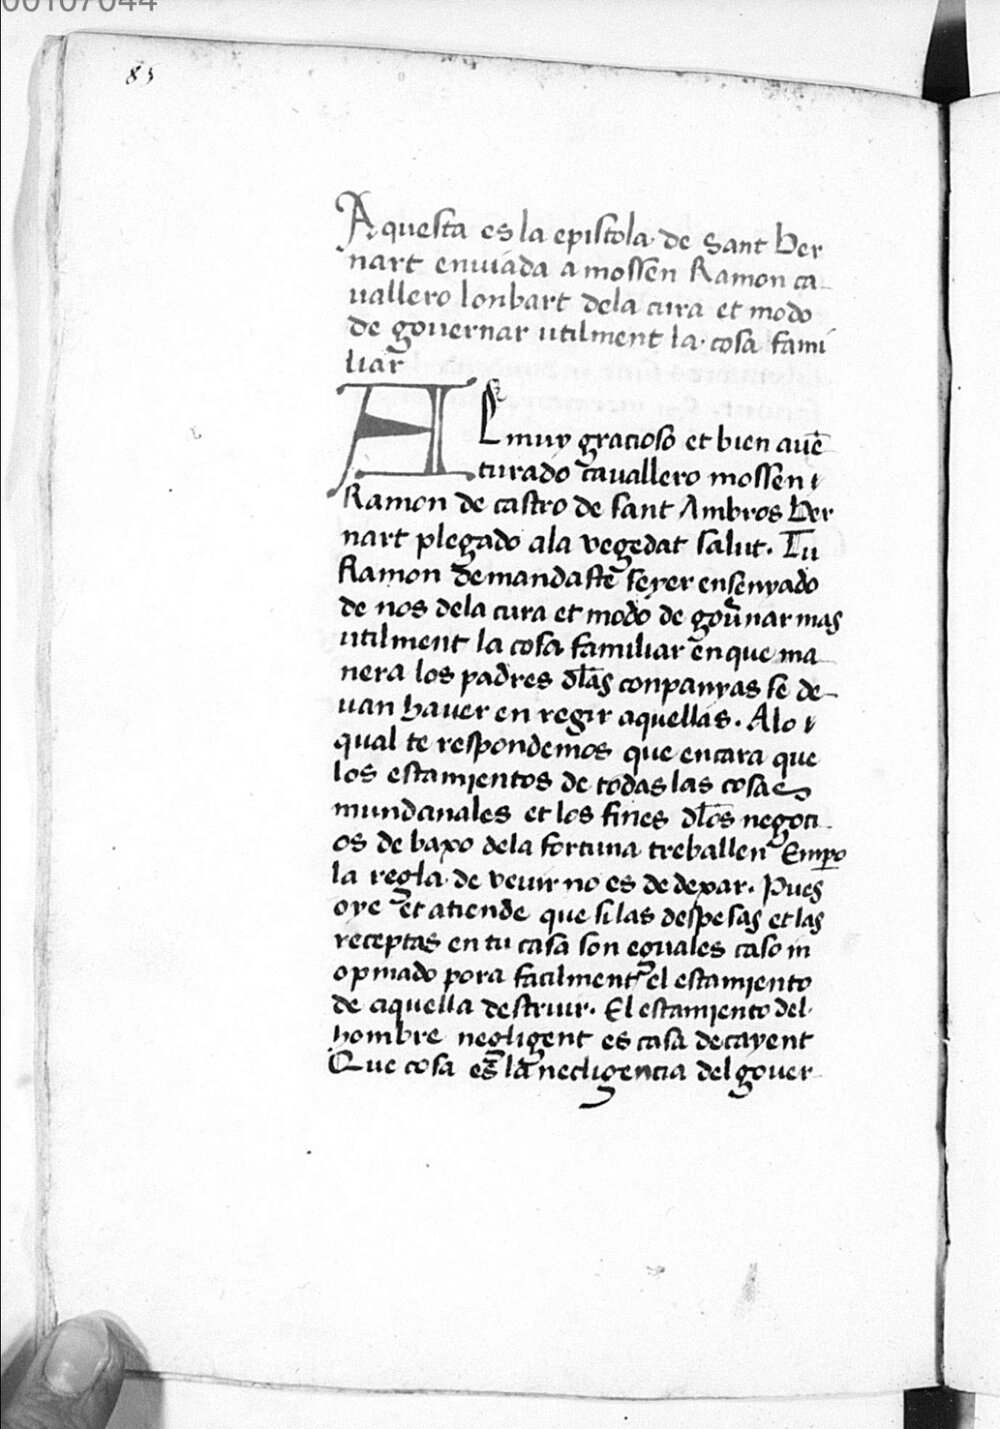 00107044
83
Aquesta es la epistola de Sant Ber
nart enuiada a mossen Ramon ca
uallero lonbart dela cura et modo
de gouernar utilment la cosa fami
liar
AL muy gracioso et bien auē
turado cauallero mossen
Ramon de castro de sant Ambros Ber
nart plegado ala vegedat salut. Tu
Ramon demandaste seyer ensenyado
de nos dela cura et modo de gou̾nar mas
utilment la cosa familiar en que ma
nera los padres dl̄as conpanyas se de
uan hauer en regir aquellas. Alo
qual te respondemos que encara que
los estamientos de todas las cosas
mundanales et los fines dl̄os negoci
os de baxo dela fortuna treballen Emꝑo
la regla de veuir no es de dexar. Pues
oye et atiende que si las despesas et las
receptas en tu casa son eguales caso in
opinado pora facilment el estamiento
de aquella destruir. El estamiento del
hombre negligent es casa decayent
Que cosa es la necligencia del gouer